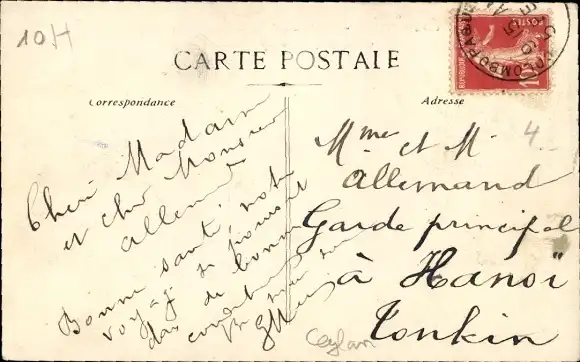 10H
CARTE POSTALE
Correspondance
Adresse
POSTES
Chère Madame
et cher Monsieur
Allemand
Bonne santé, notre
voyage se poursuit
dans de bonnes
conditions
Mme et Mr
Allemand
Garde principal
à Hanoï
Tonkin
4
Ceylan